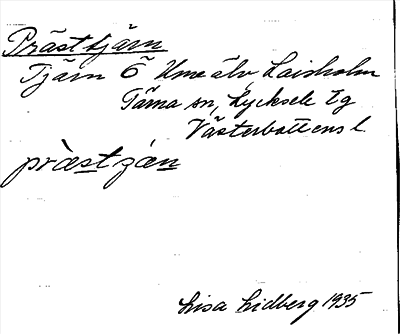 Prästtjärn
Tjärn Ö Ume älv, Laisholm
Tärna sn, Lycksele lg
Västerbottens l.
præ̀stɟán
Lisa Lidberg 1935